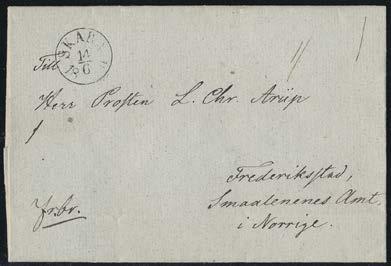 SKARA
14
6
Till
Herr Prosten L. Chr. Arüp
Frederiksstad,
Smaalenenes Amt.
i Norrige.
Fr.br.